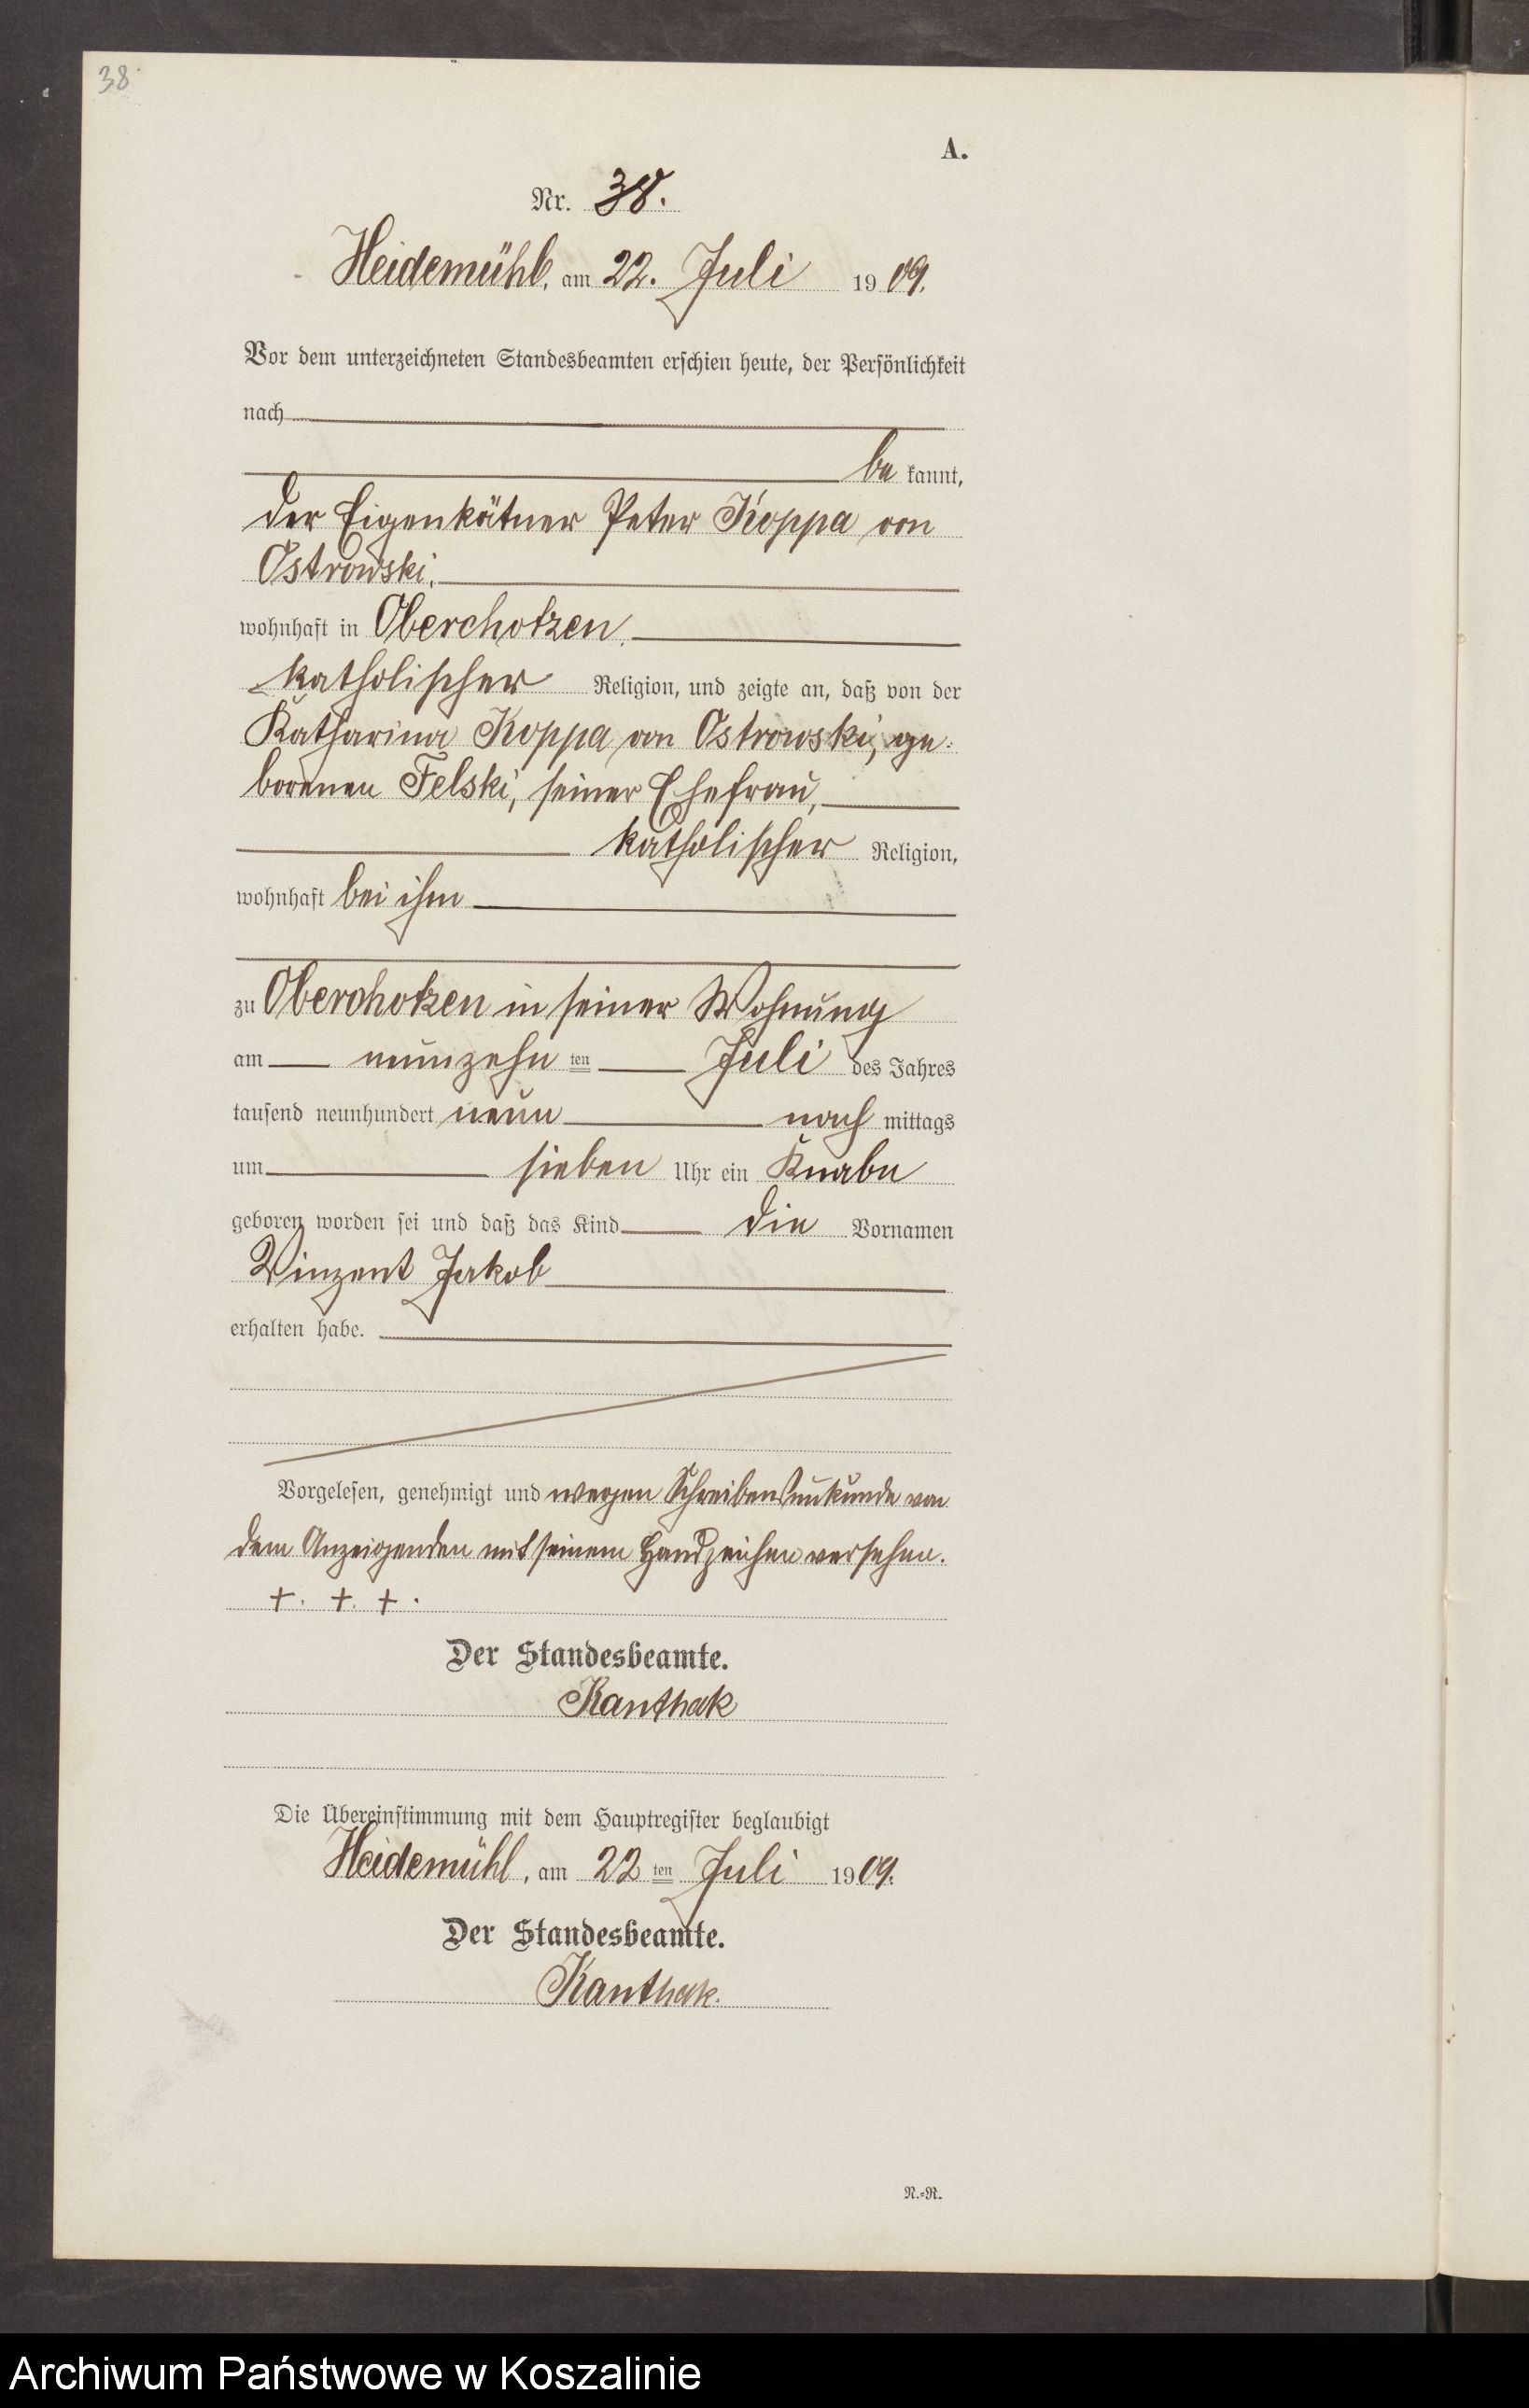 38
A.
Nr. 38.
Heidemühl, am 22. Juli 1909.
Vor dem unterzeichneten Standesbeamten erschien heute, der Persönlichkeit
nach
be kannt,
der Eigenkätner Peter Koppa von
Ostrowski,
wohnhaft in Oberchotzen,
katholischer Religion, und zeigte an, daß von der
Katharina Koppa von Ostrowski, ge-
borenen Felski, seiner Ehefrau,
katholischer Religion,
wohnhaft bei ihm
zu Oberchotzen in seiner Wohnung
am neunzehn ten Juli des Jahres
tausend neunhundert neun nach mittags
um sieben Uhr ein Knabe
geboren worden sei und daß das Kind die Vornamen
Vinzent Jakob
erhalten habe.
Vorgelesen, genehmigt und wegen Schreibensunkunde von
dem Anzeigenden mit seinem Handzeichen versehen.
+. +. +.
Der Standesbeamte.
Kanthak
Die Übereinstimmung mit dem Hauptregister beglaubigt
Heidemühl, am 22 ten Juli 1909.
Der Standesbeamte.
Kanthak.
N.=R.
Archiwum Państwowe w Koszalinie